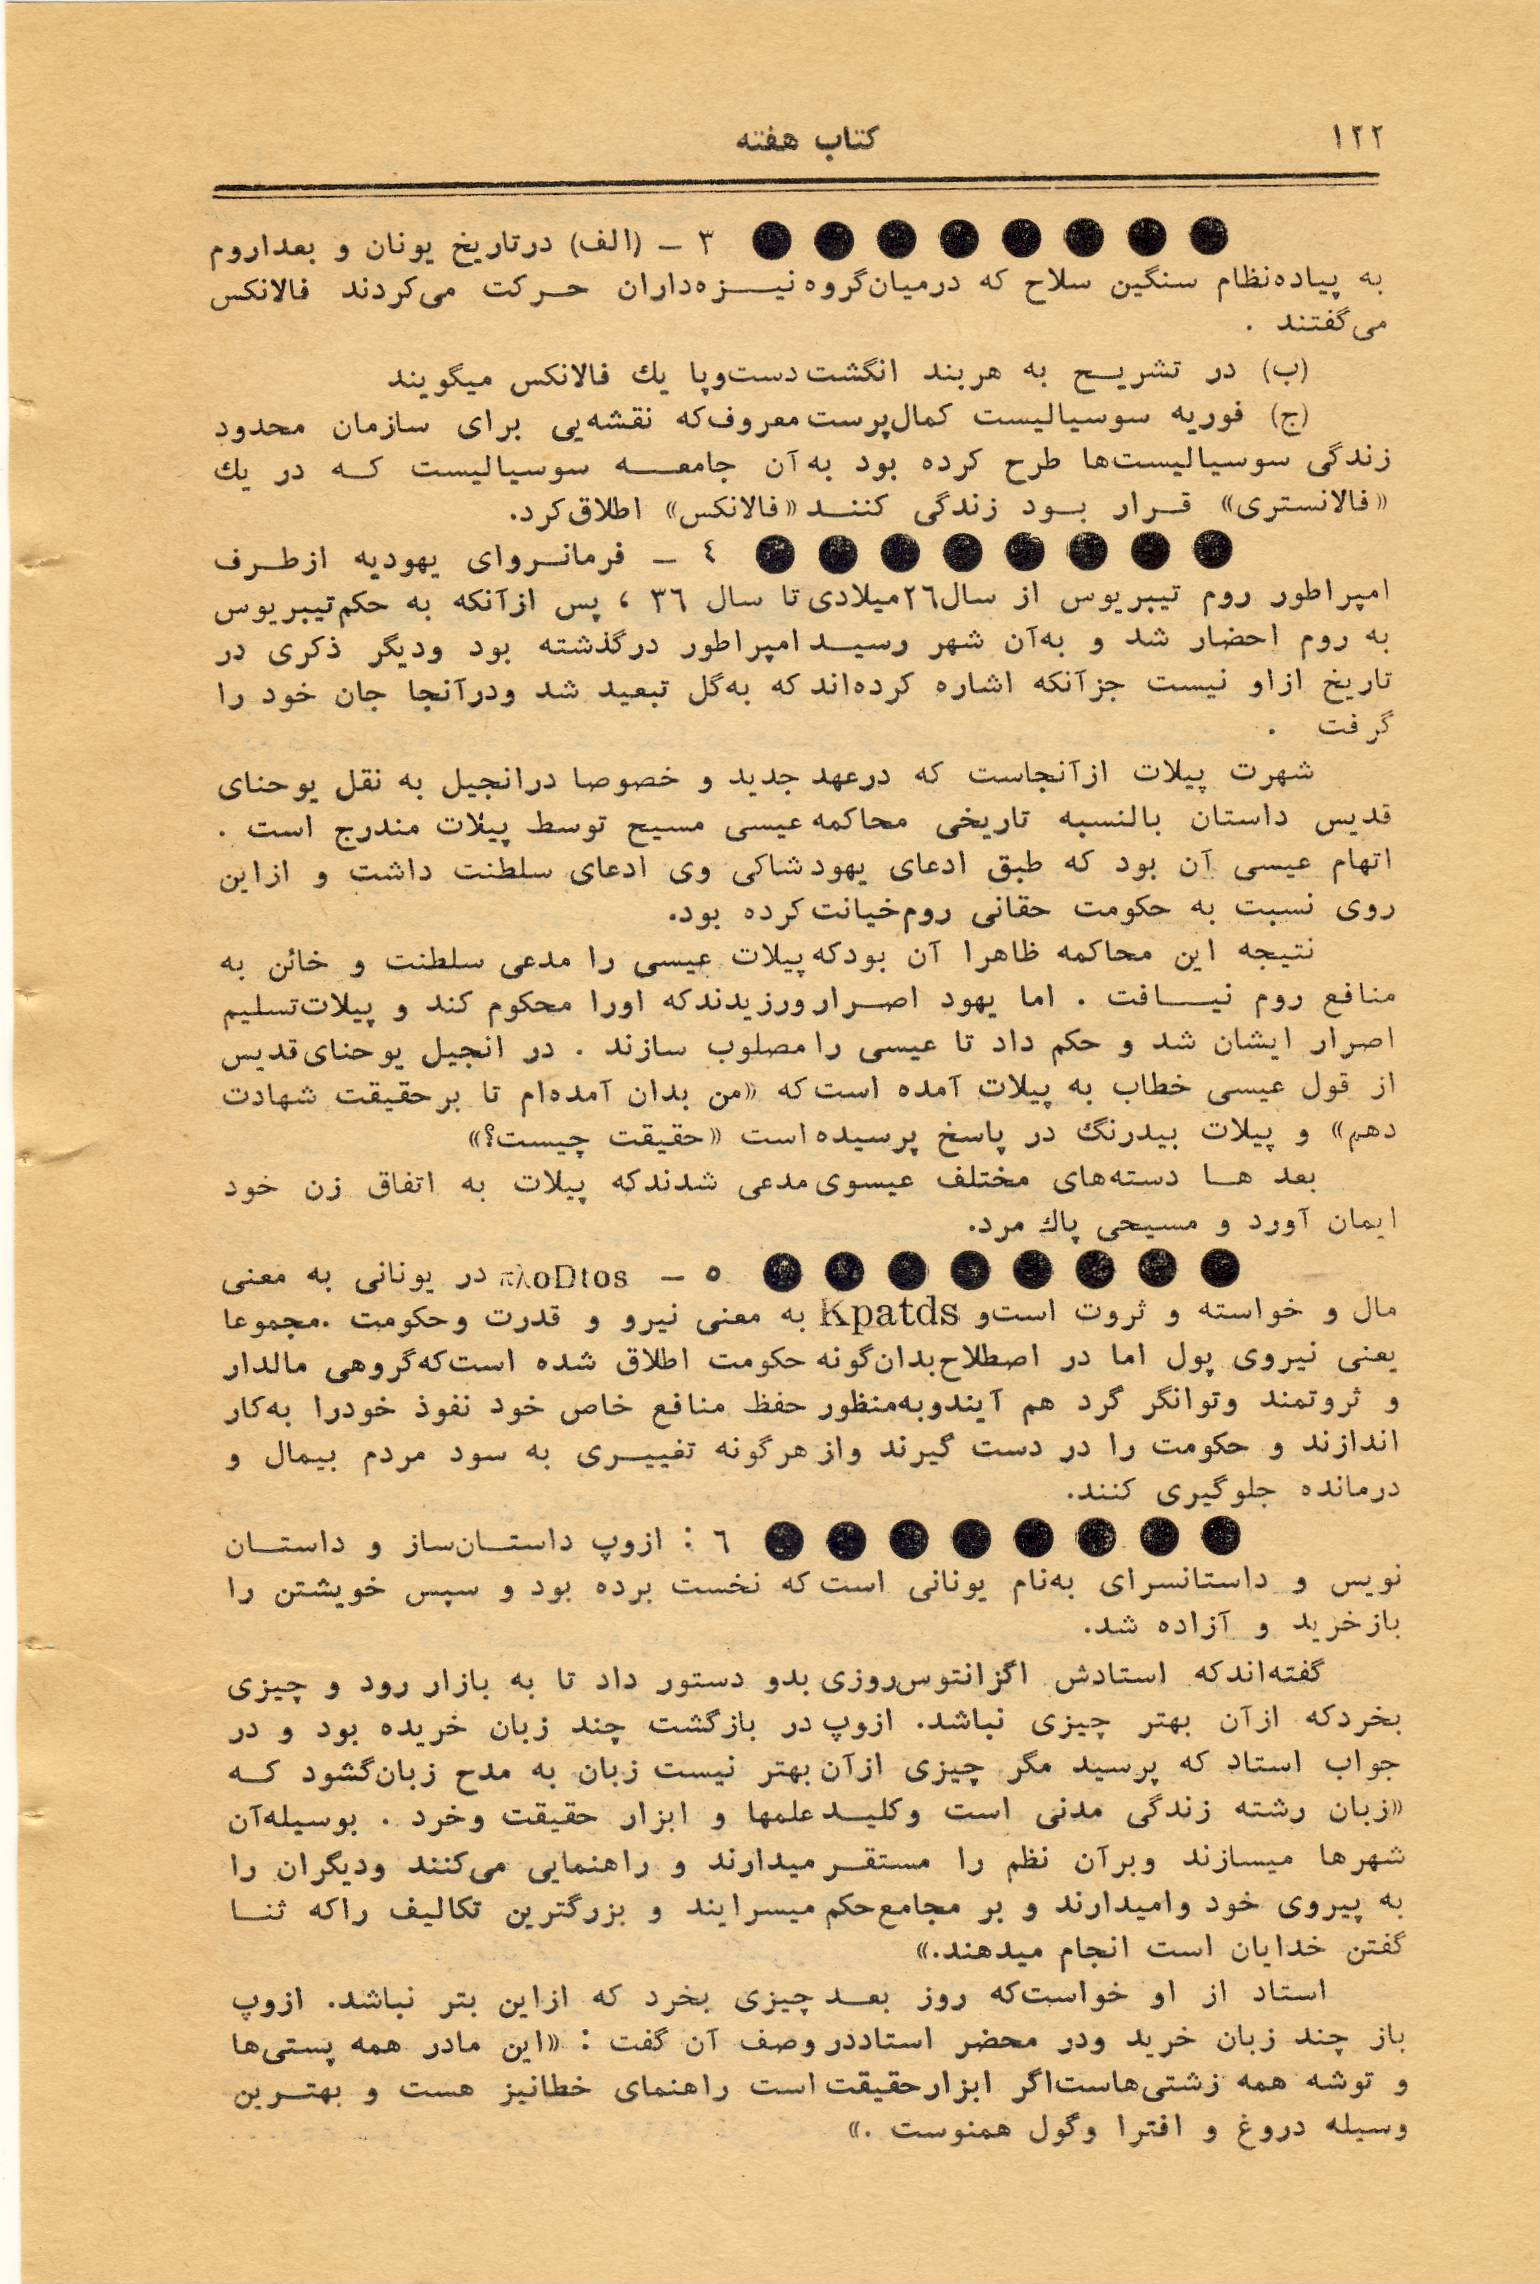 ۱۲۲ کتاب هفته
●●●●●●●● ۳ ـ (الف) در تاریخ یونان و بعدا روم
به پیاده‌نظام سنگین سلاح که درمیان گروه نیزه‌داران حرکت می‌کردند فالانکس
می‌گفتند .
(ب) در تشریح به هربند انگشت دست‌وپا یك فالانکس میگویند
(ج) فوریه سوسیالیست کمال‌پرست معروف‌که نقشه‌یی برای سازمان محدود
زندگی سوسیالیست‌ها طرح کرده بود به‌آن جامعه سوسیالیست که در یك
«فالانستری» قرار بود زندگی کنند «فالانکس» اطلاق‌کرد.
●●●●●●●● ٤ ـ فرمانروای یهودیه ازطرف
امپراطور روم تیبریوس از سال ۲٦میلادی تا سال ۳٦ ، پس ازآنکه به حکم تیبریوس
به روم احضار شد و به‌آن شهر رسید امپراطور درگذشته بود ودیگر ذکری در
تاریخ ازاو نیست جزآنکه اشاره کرده‌اند که به‌گل تبعید شد ودرآنجا جان خود را
گرفت .
شهرت پیلات ازآنجاست که درعهد جدید و خصوصا درانجیل به نقل یوحنای
قدیس داستان بالنسبه تاریخی محاکمه عیسی مسیح توسط پیلات مندرج است .
اتهام عیسی آن بود که طبق ادعای یهود شاکی وی ادعای سلطنت داشت و ازاین
روی نسبت به حکومت حقانی روم خیانت کرده بود.
نتیجه این محاکمه ظاهرا آن بودکه پیلات عیسی را مدعی سلطنت و خائن به
منافع روم نیافت . اما یهود اصرار ورزیدندکه اورا محکوم کند و پیلات تسلیم
اصرار ایشان شد و حکم داد تا عیسی را مصلوب سازند . در انجیل یوحنای قدیس
از قول عیسی خطاب به پیلات آمده است که «من بدان آمده‌ام تا برحقیقت شهادت
دهم» و پیلات بیدرنگ در پاسخ پرسیده است «حقیقت چیست؟»
بعد ها دسته‌های مختلف عیسوی مدعی شدندکه پیلات به اتفاق زن خود
ایمان آورد و مسیحی پاك مرد.
●●●●●●●● ٥ ـ πλoDtos در یونانی به معنی
مال و خواسته و ثروت است‌و Kpatds به معنی نیرو و قدرت وحکومت .مجموعا
یعنی نیروی پول اما در اصطلاح بدان‌گونه حکومت اطلاق شده است‌که‌گروهی مالدار
و ثروتمند وتوانگر گرد هم آیندوبه‌منظور حفظ منافع خاص خود نفوذ خودرا به‌کار
اندازند و حکومت را در دست گیرند واز هرگونه تغییری به سود مردم بیمال و
درمانده جلوگیری کنند.
●●●●●●●● ٦ : ازوپ داستان‌ساز و داستان
نویس و داستانسرای به‌نام یونانی است که نخست برده بود و سپس خویشتن را
بازخرید و آزاده شد.
گفته‌اندکه استادش اگزانتوس روزی بدو دستور داد تا به بازار رود و چیزی
بخردکه ازآن بهتر چیزی نباشد. ازوپ در بازگشت چند زبان خریده بود و در
جواب استاد که پرسید مگر چیزی ازآن بهتر نیست زبان به مدح زبان‌گشود که
«زبان رشته زندگی مدنی است وکلید علمها و ابزار حقیقت وخرد . بوسیله‌آن
شهرها میسازند وبرآن نظم را مستقر میدارند و راهنمایی می‌کنند ودیگران را
به پیروی خود وامیدارند و بر مجامع حکم میسرایند و بزرگترین تکالیف راکه ثنا
گفتن خدایان است انجام میدهند.»
استاد از او خواست‌که روز بعد چیزی بخرد که ازاین بتر نباشد. ازوپ
باز چند زبان خرید ودر محضر استاددر وصف آن گفت : «این مادر همه پستی‌ها
و توشه همه زشتی‌هاست‌اگر ابزارحقیقت است راهنمای خطانیز هست و بهترین
وسیله دروغ و افترا وگول همنوست .»